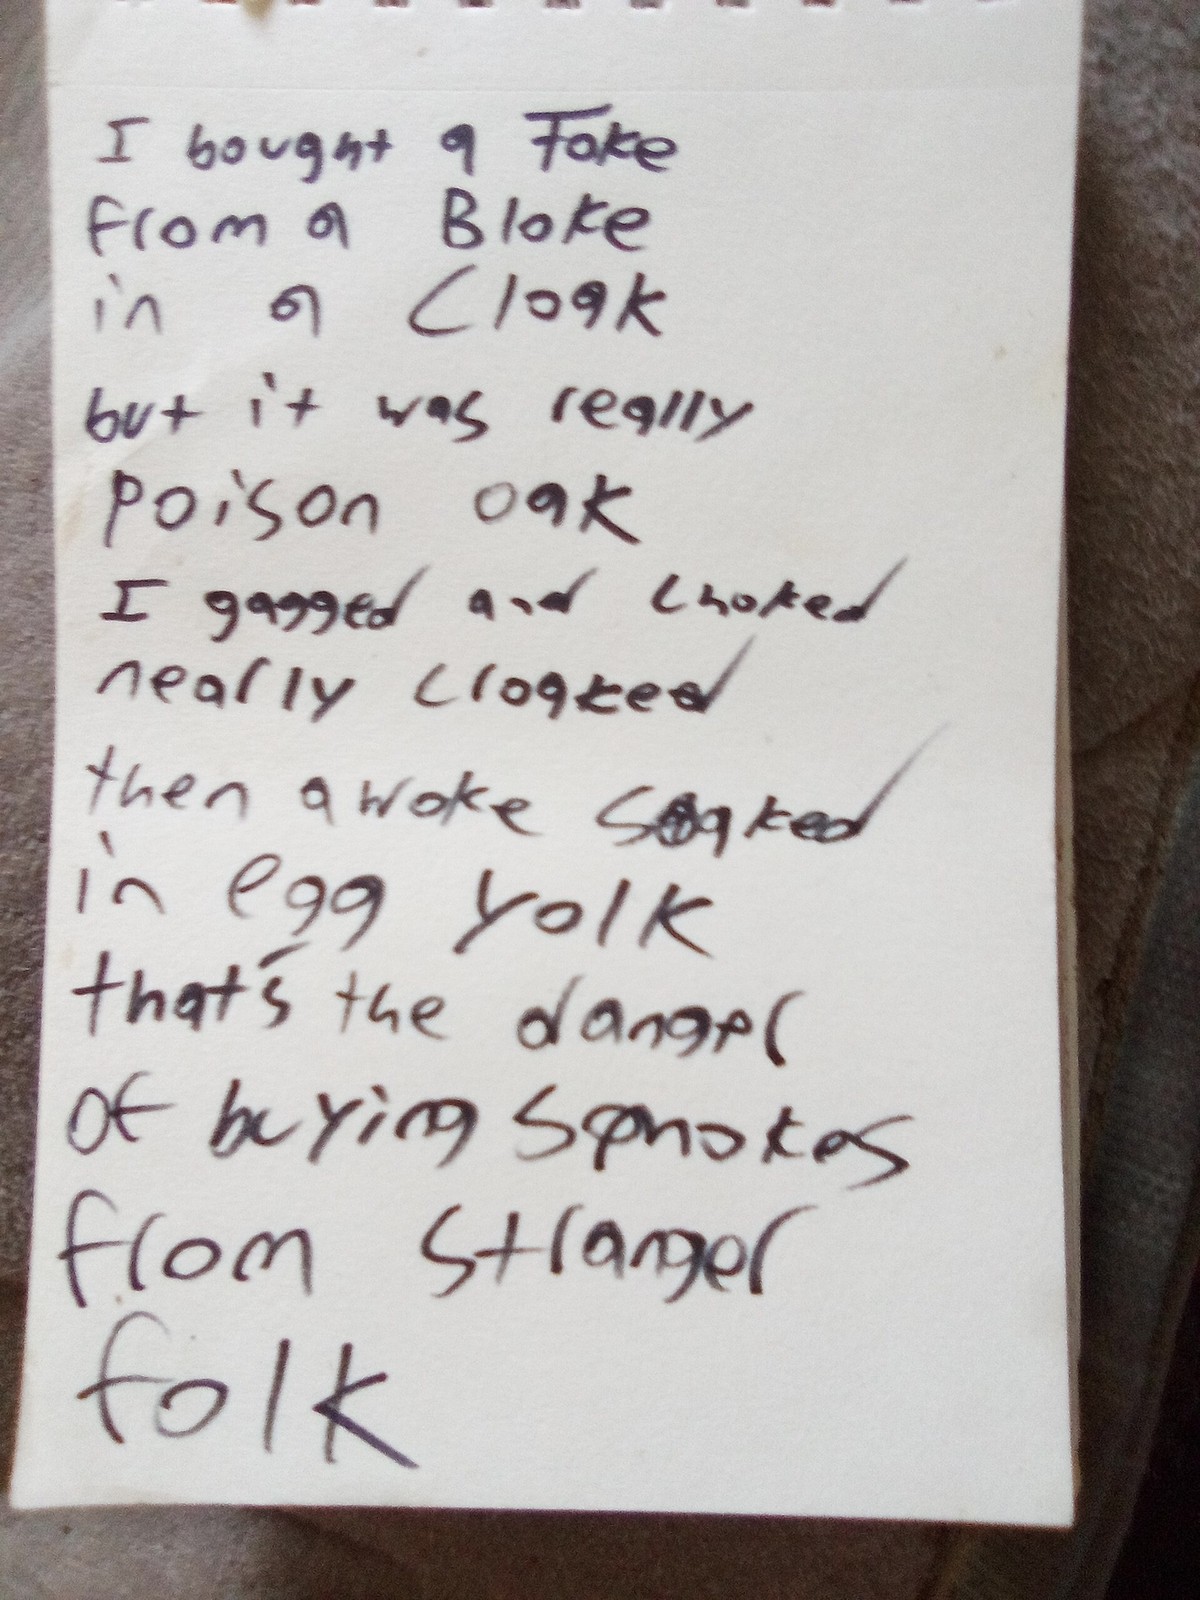 I bought a Toke
from a Bloke
in a Cloak
but it was really
poison oak
I gagged and choked
nearly croaked
then awoke soaked
in egg yolk
that's the danger
of buying smokes
from stranger
folk